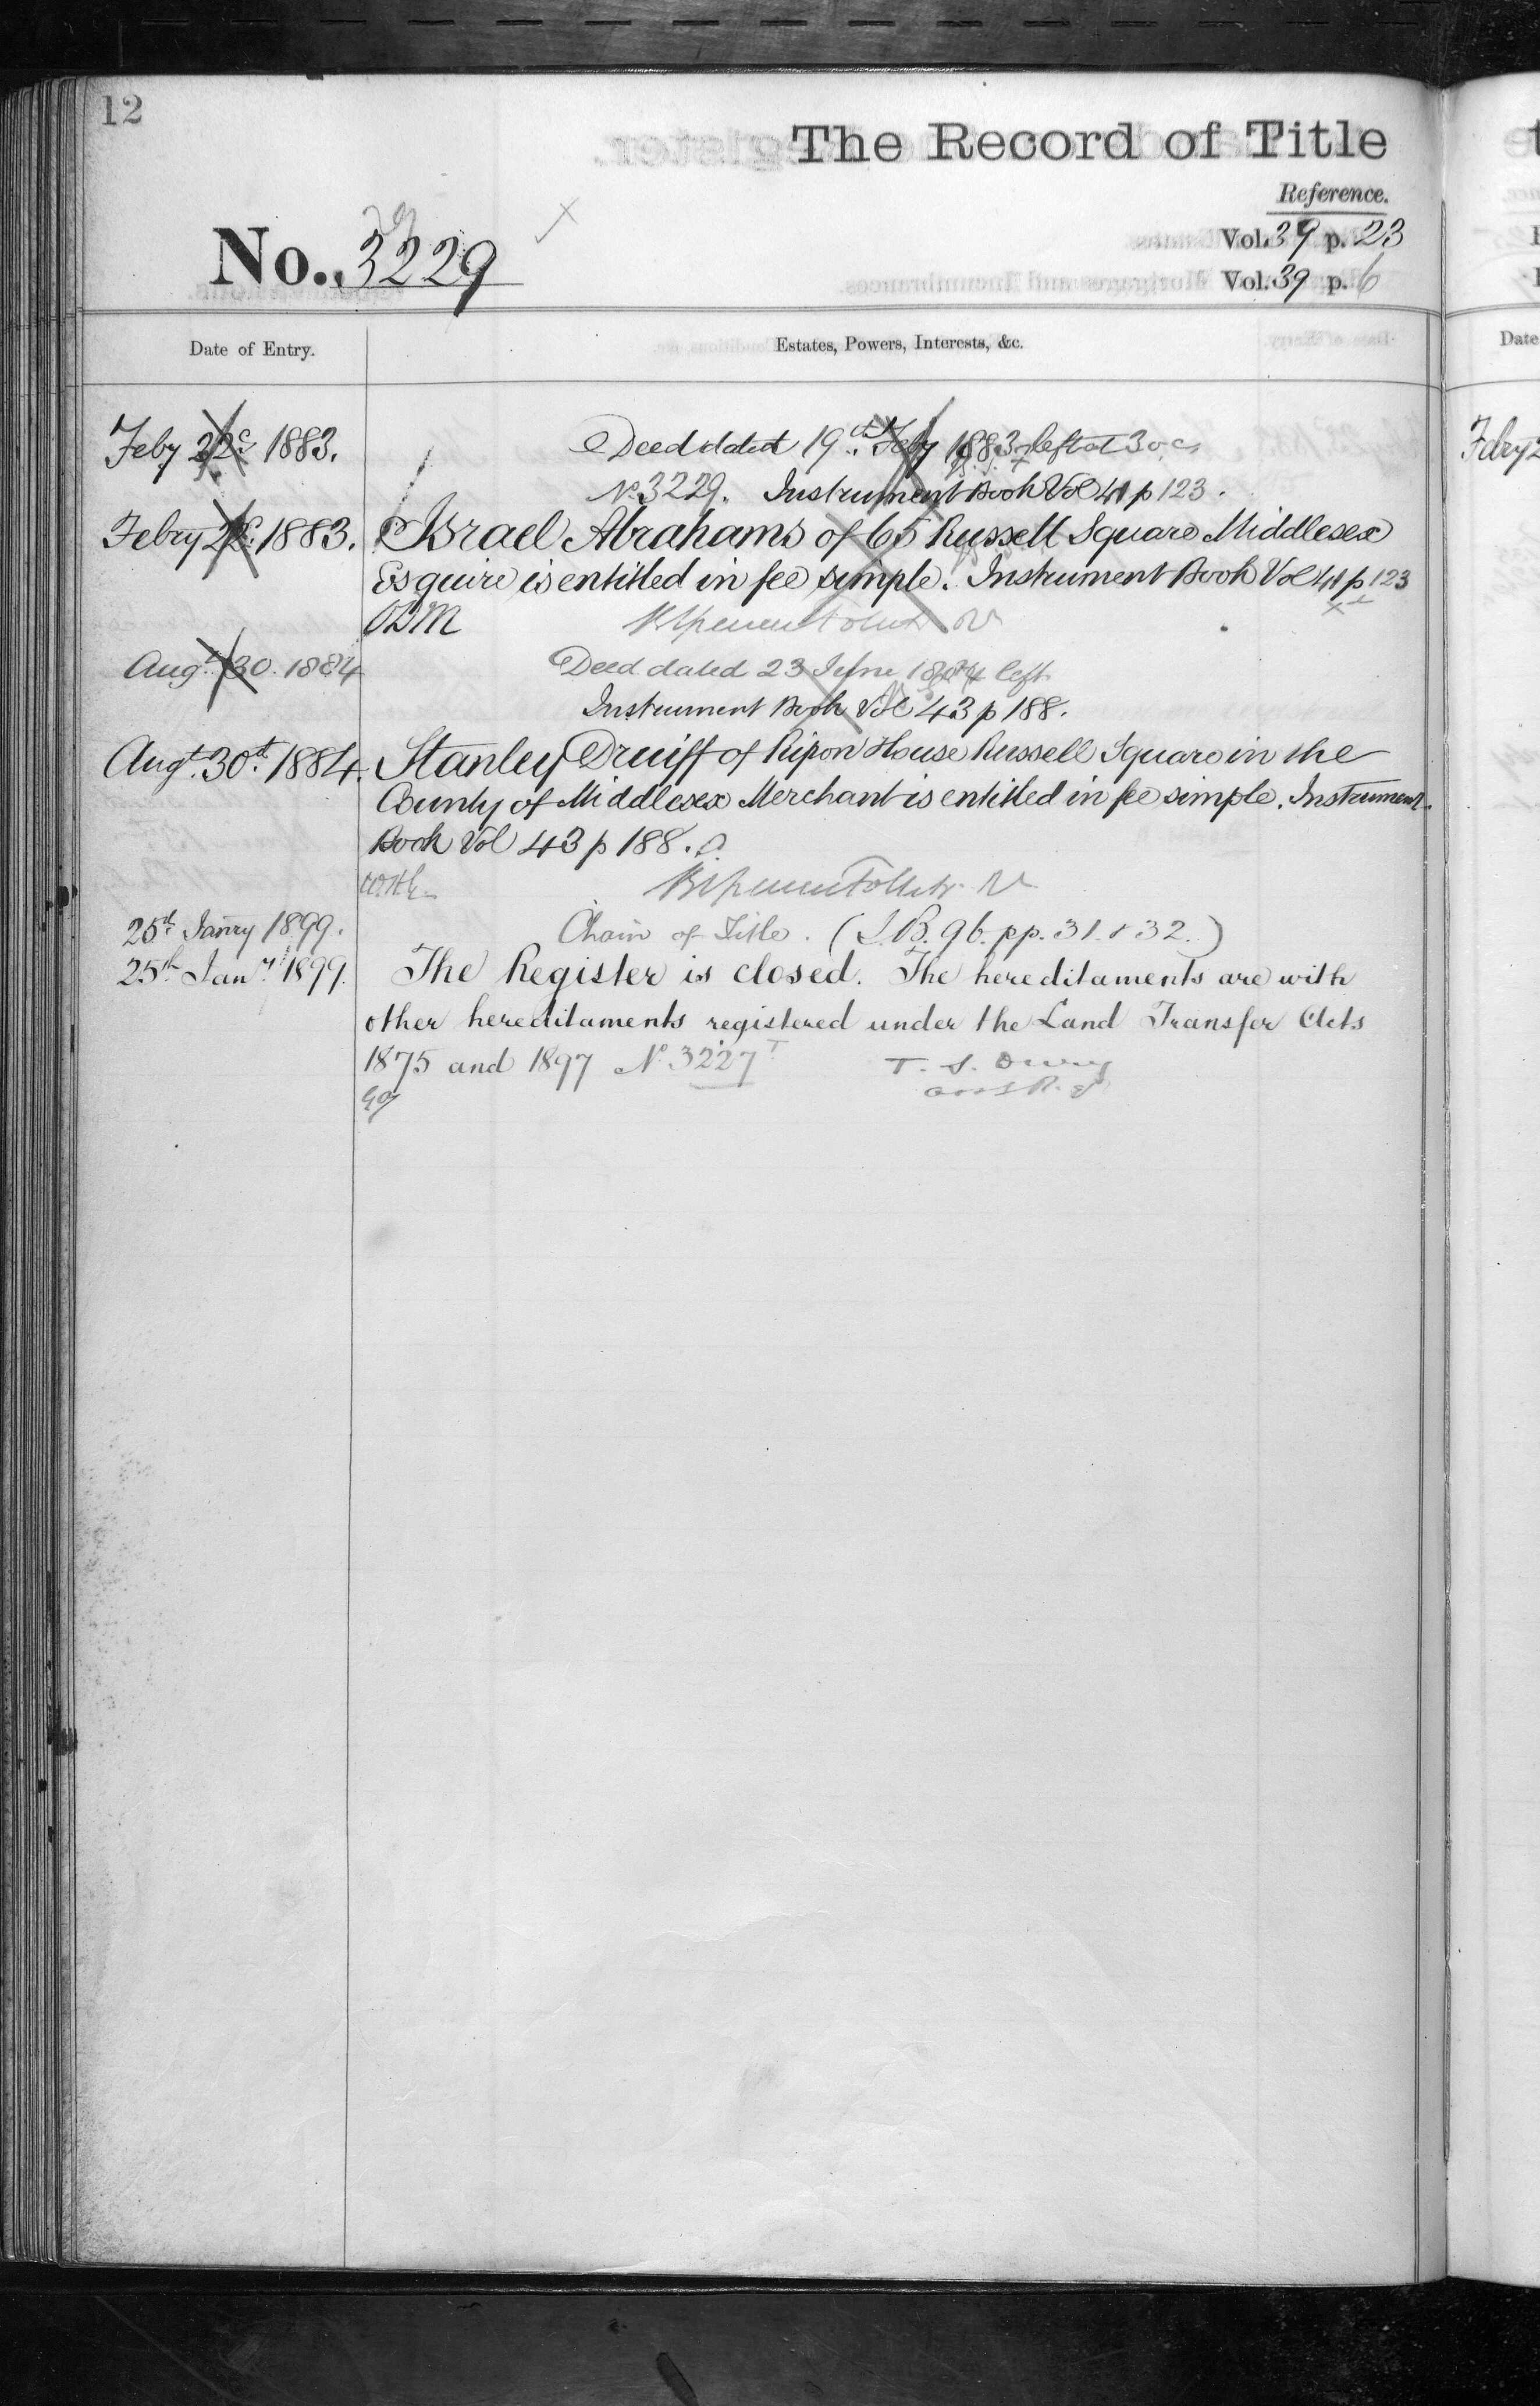 12
The Record of Title
Reference.
No. 3229
Vol. 39 p. 23
Vol. 39 p. 6
Date of Entry.
Estates, Powers, Interests, &c.
Feby 22d 1883. Deed dated 19th Feby 1883 left at 3 o.c.
No 3229. Instrument Book Vol 41 p 123.
Febry 22d 1883. Israel Abrahams of 65 Russell Square Middlesex
Esquire is entitled in fee simple. Instrument Book Vol 41 p 123
Augt 30. 1884 Deed dated 23 June 1884 left
Instrument Book Vol 43 p 188.
Augt. 30th 1884. Stanley Druiff of Ripon House Russell Square in the
County of Middlesex Merchant is entitled in fee simple. Instrument
Book Vol 43 p 188.
25th Janry 1899. Chain of Title. (I.B. 96. pp. 31. & 32.)
25th Jany 1899. The Register is closed. The hereditaments are with
other hereditaments registered under the Land Transfer Acts
1875 and 1897 No 3227
Date